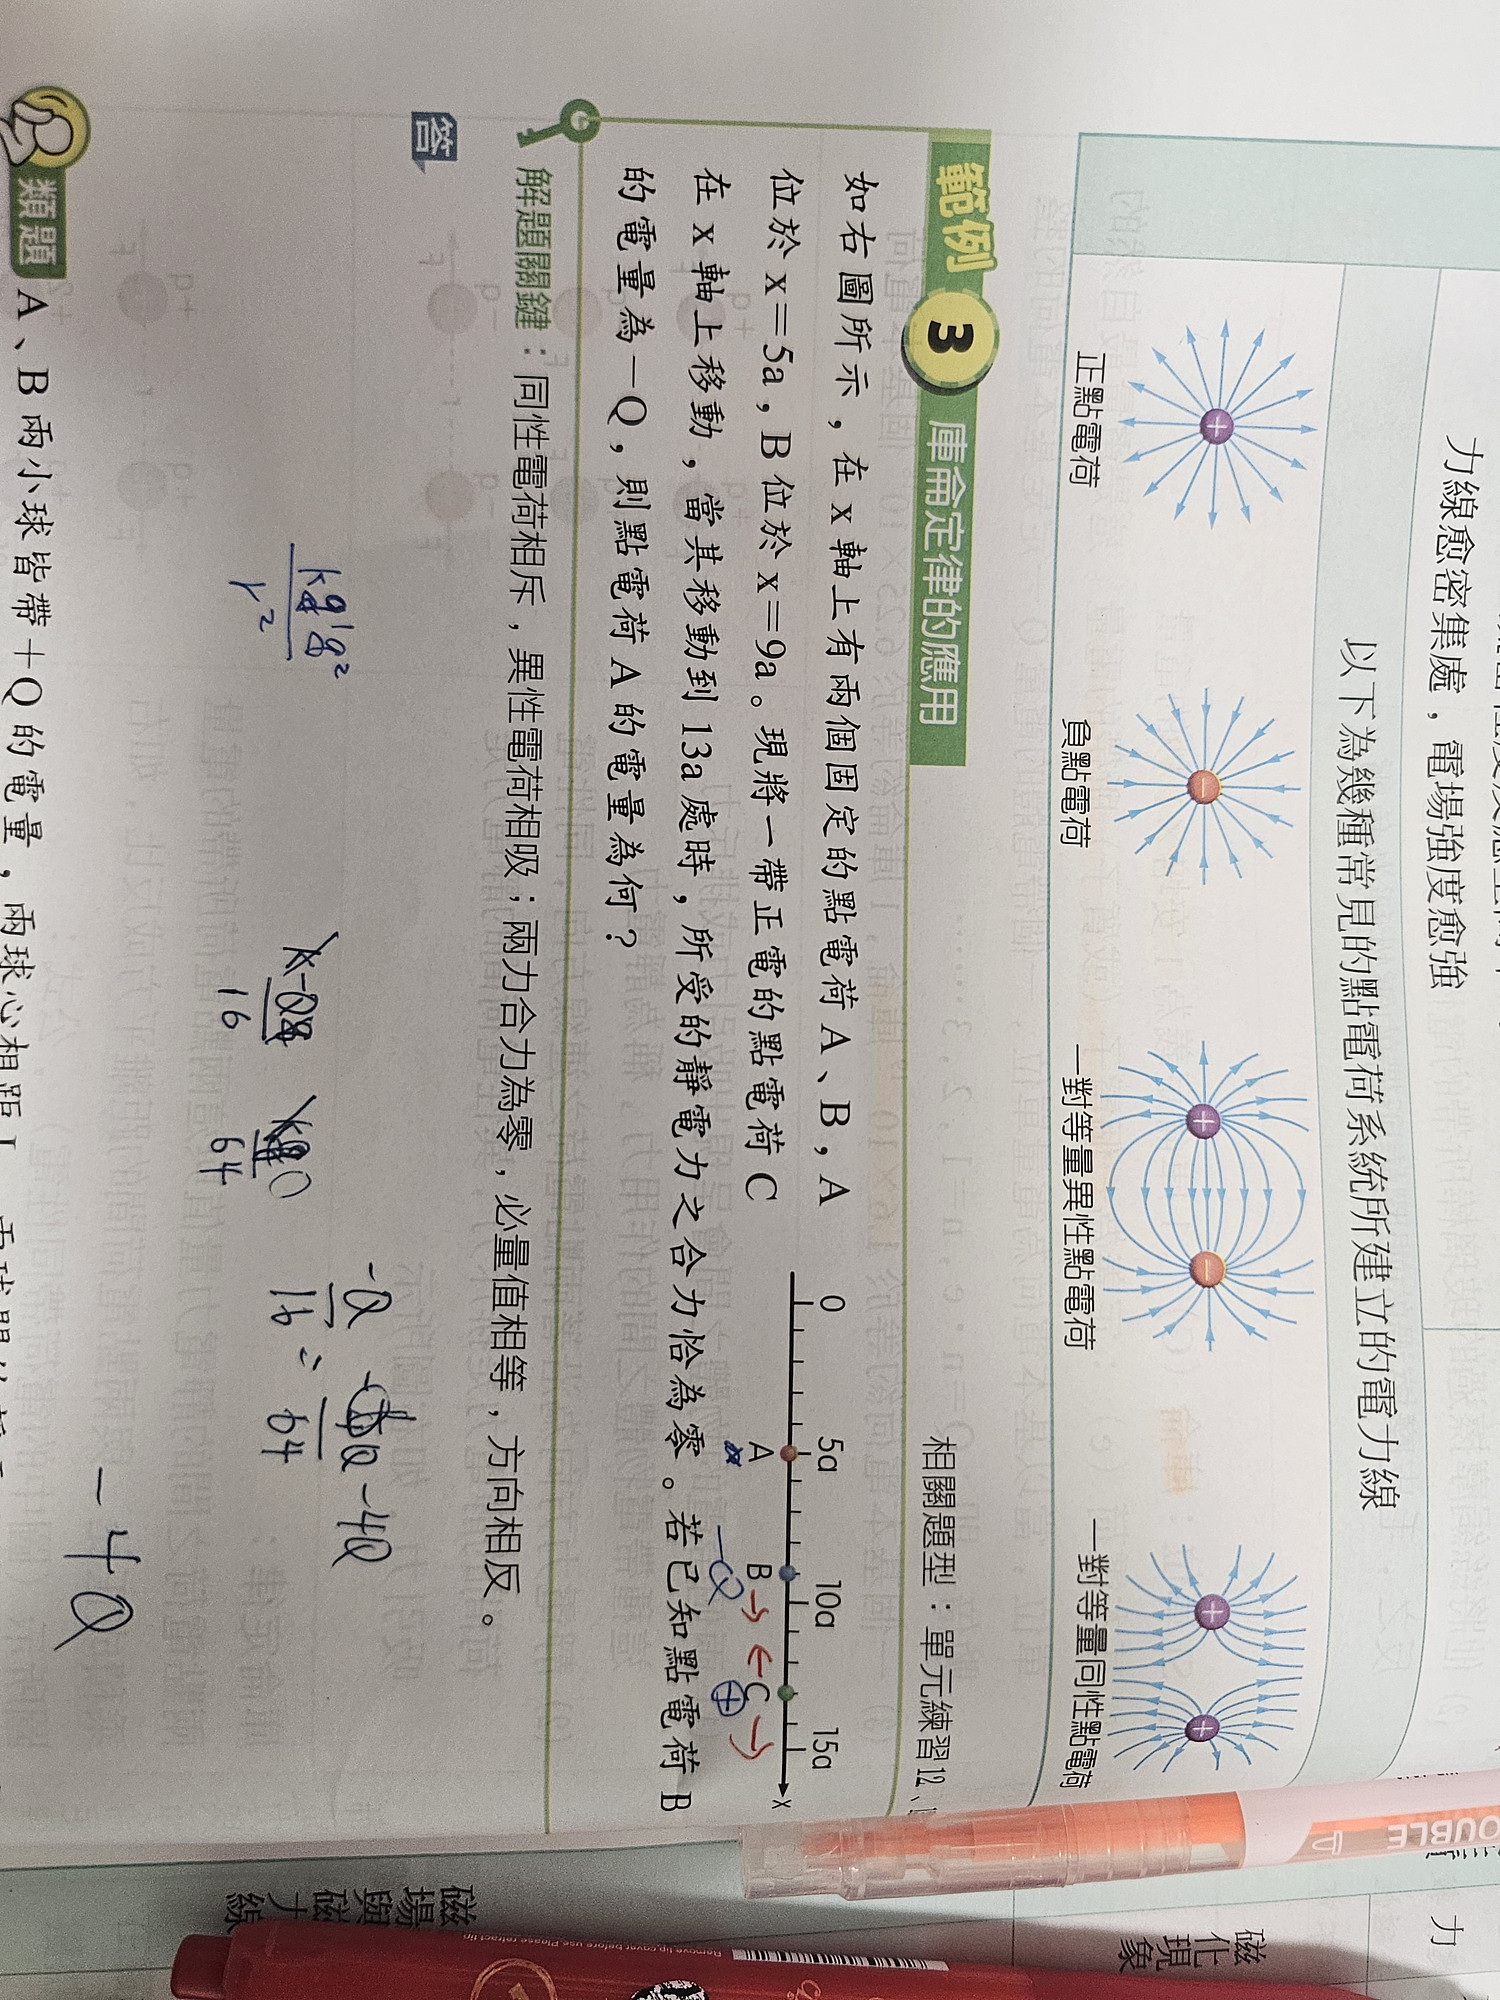 力線愈密集處，電場強度愈強
以下為幾種常見的點電荷系統所建立的電力線
正點電荷
負點電荷
一對等量異性點電荷
一對等量同性點電荷
範例 3 庫侖定律的應用
相關題型：單元練習12、
如右圖所示，在 x 軸上有兩個固定的點電荷 A、B，A
位於 x＝5a，B 位於 x＝9a。現將一帶正電的點電荷 C
在 x 軸上移動，當其移動到 13a 處時，所受的靜電力之合力恰為零。若已知點電荷 B
的電量為－Q，則點電荷 A 的電量為何？
0 5a 10a 15a
A B C x
－Q
解題關鍵：同性電荷相斥，異性電荷相吸；兩力合力為零，必量值相等，方向相反。
答
-Q
16
=
64
-4Q
16
64
-4Q
類題 A、B 兩小球皆帶＋Q 的電量，兩球心相距
磁場與磁力線
磁化現象
力
OUBLE
Remove tip cover before use. Please retract tip